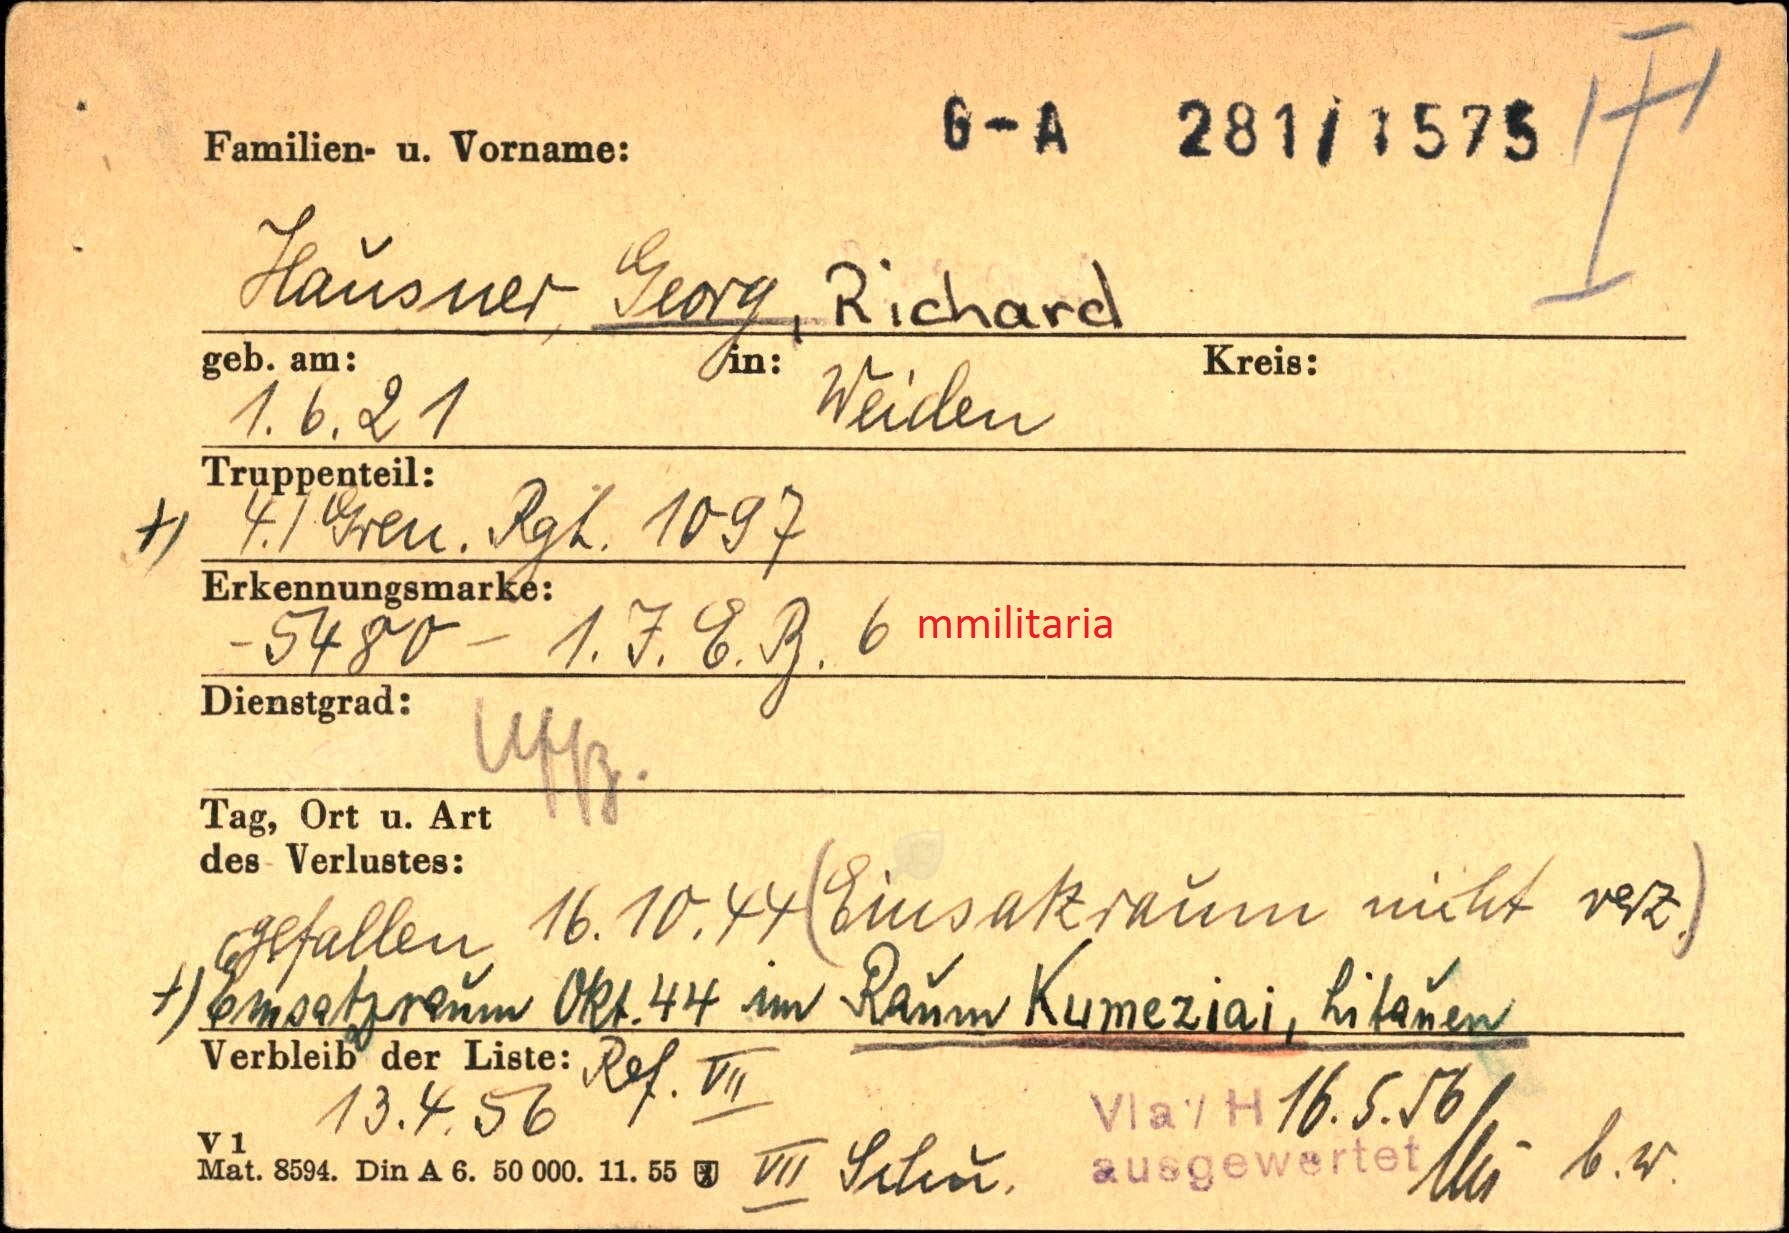 G-A 281/1575
III
Familien- u. Vorname:
Hausner, Georg, Richard
geb. am: in: Kreis:
1.6.21 Weiden
Truppenteil:
+) 4./Gren. Rgt. 1097
Erkennungsmarke:
-5480- 1. J. E. B. 6
mmilitaria
Dienstgrad:
Uffz.
Tag, Ort u. Art
des Verlustes:
gefallen 16.10.44 (Einsatzraum nicht verz.)
+) Einsatzraum Okt. 44 im Raum Kumeziai, Litauen
Verbleib der Liste: Ref. VII
13.4.56
VIa / H 16.5.56
ausgewertet
b.w.
V 1
Mat. 8594. Din A 6. 50 000. 11. 55
VII Schü.